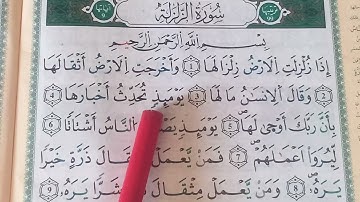 سُورَةُ الزَّلْزَلَةِ
بِسْمِ اللَّهِ الرَّحْمَنِ الرَّحِيمِ
إِذَا زُلْزِلَتِ الْأَرْضُ زِلْزَالَهَا 1 وَأَخْرَجَتِ الْأَرْضُ أَثْقَالَهَا
2 وَقَالَ الْإِنسَانُ مَا لَهَا 3 يَوْمَئِذٍ تُحَدِّثُ أَخْبَارَهَا 4
بِأَنَّ رَبَّكَ أَوْحَى لَهَا 5 يَوْمَئِذٍ النَّاسُ أَشْتَاتًا 6
لِّيُرَوْا أَعْمَالَهُمْ 7 فَمَن يَعْمَلْ ذَرَّةٍ خَيْرًا
يَرَهُ 8 وَمَن يَعْمَلْ مِثْقَالَ شَرًّا يَرَهُ 9